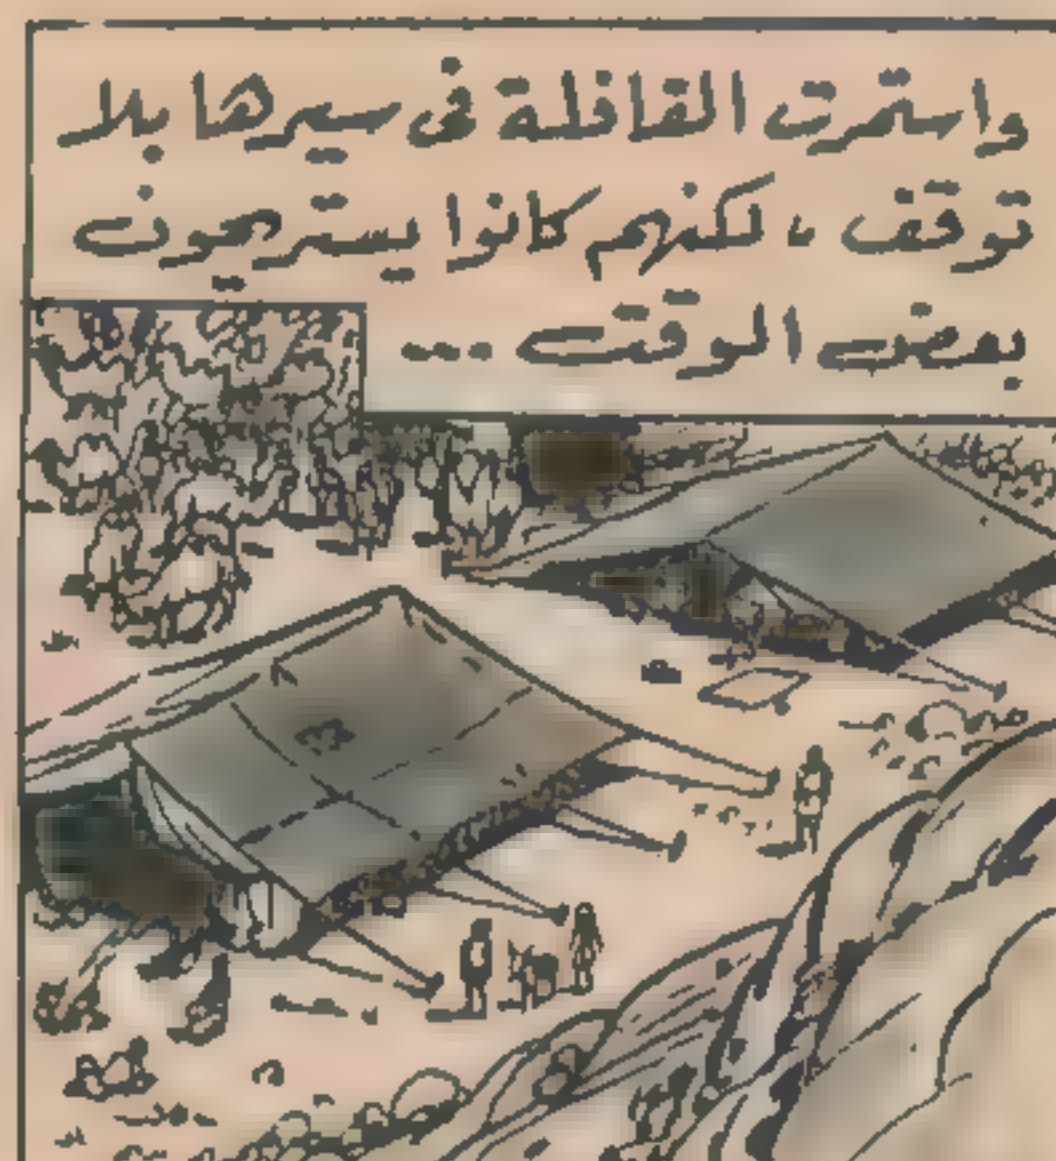 واستمرت القافلة فى سيرها بلا
توقف ، لكنهم كانوا يستريحون
بعض الوقت ...